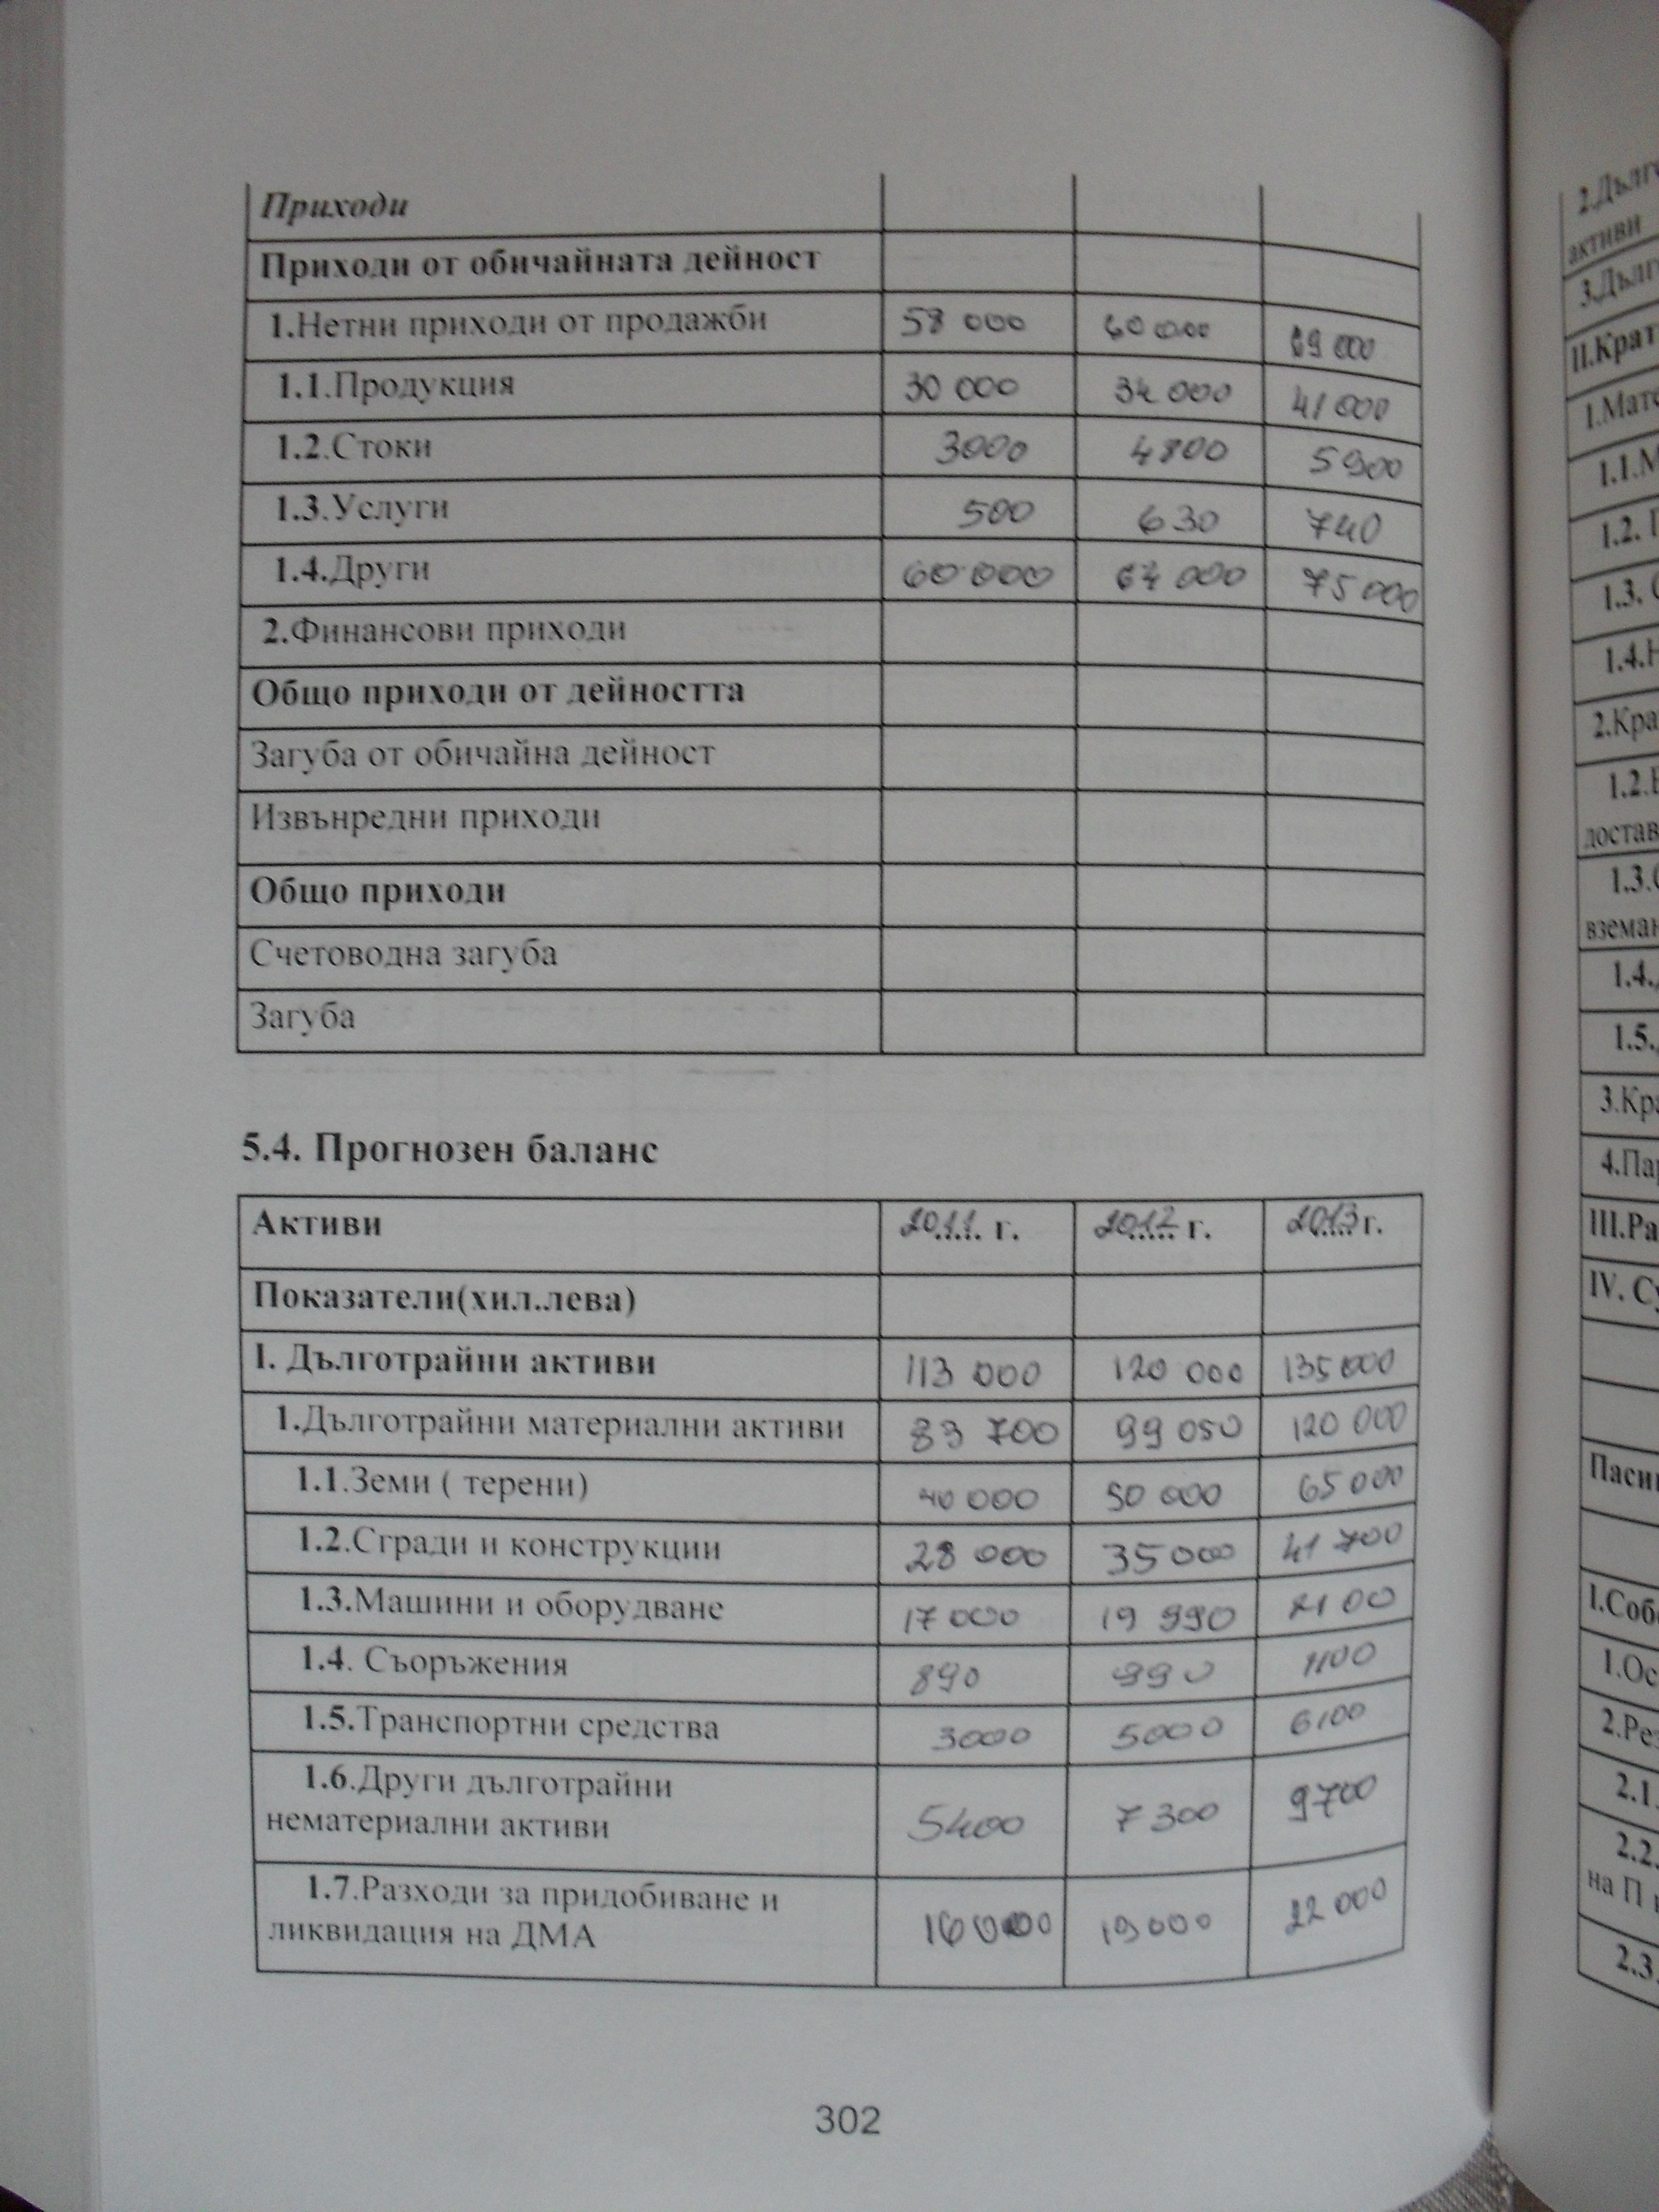 Приходи
Приходи от обичайната дейност
1.Нетни приходи от продажби 58 000 60 000 69 000
1.1.Продукция 30 000 34 000 41 000
1.2.Стоки 3000 4800 5900
1.3.Услуги 500 630 740
1.4.Други 60 000 64 000 75 000
2.Финансови приходи
Общо приходи от дейността
Загуба от обичайна дейност
Извънредни приходи
Общо приходи
Счетоводна загуба
Загуба
5.4. Прогнозен баланс
Активи 2011 г. 2012 г. 2013 г.
Показатели(хил..лева)
I. Дълготрайни активи 113 000 120 000 135 000
1.Дълготрайни материални активи 83 700 99 050 120 000
1.1.Земи ( терени) 40 000 50 000 65 000
1.2.Сгради и конструкции 28 000 35 000 41 700
1.3.Машини и оборудване 17 000 19 990 2100
1.4. Съоръжения 890 990 1100
1.5.Транспортни средства 3000 5000 6100
1.6.Други дълготрайни
нематериални активи 5400 7300 9700
1.7.Разходи за придобиване и
ликвидация на ДМА 16000 19000 22 000
302
активи
II.Крат
1.Мате
1.1.М
1.2.
1.3.
1.4.Н
2.Кра
1.2.
достав
1.3.
вземан
1.4.
1.5.
3.Кра
4.Пар
III.Ра
IV. Су
Паси
I.Соб
1.Ос
2.Рез
2.1.
2.2.
на П
2.3.